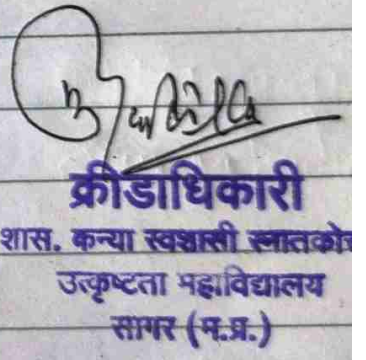 क्रीडाधिकारी
शास. कन्या स्वशासी स्नातकोत्त
उत्कृष्टता महाविद्यालय
सागर (म.प्र.)